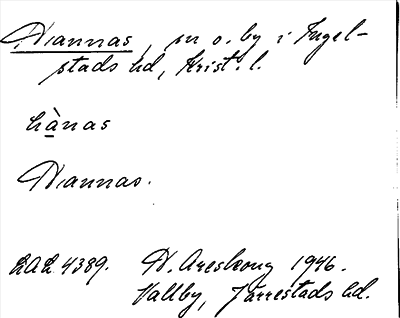 Hannas, sn o. by i Ingel-
stads hd, Krist. l.
hànas
Hannas.
LAL 4389. H. Areskoug 1946.
Vallby, Järrestads hd.